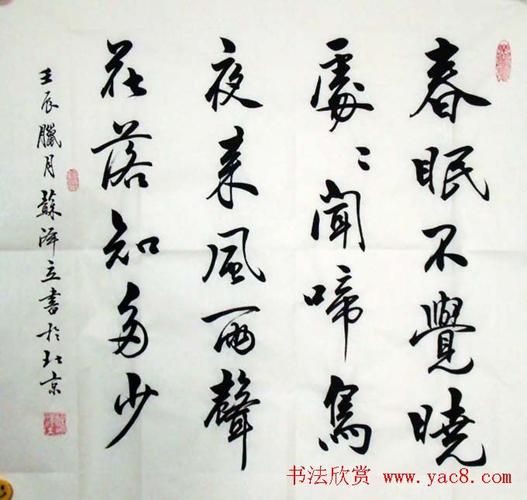 春眠不覺曉
處〻聞啼鳥
夜来風雨聲
花落知多少
壬辰臘月蘇澤立書於北京
书法欣赏 www.yac8.com